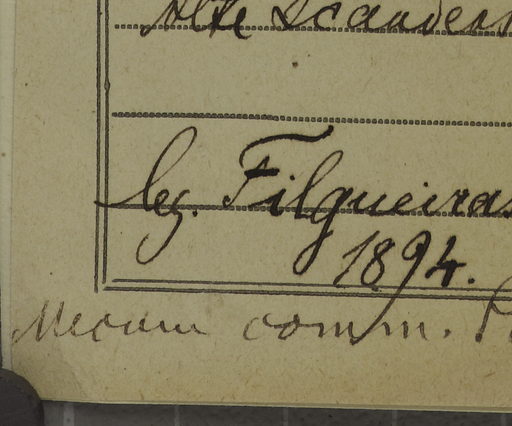 Alte Scandens
leg. Filgueiras
1894.
Mecum comm.